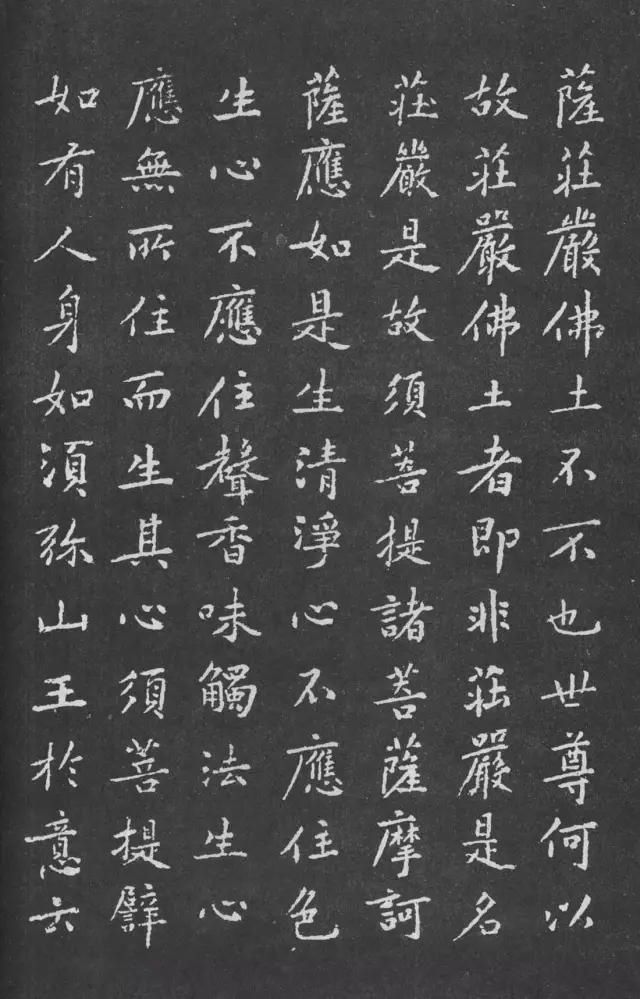 薩莊嚴佛土不不也世尊何以
故莊嚴佛土者即非莊嚴是名
莊嚴是故須菩提諸菩薩摩訶
薩應如是生清淨心不應住色
生心不應住聲香味觸法生心
應無所住而生其心須菩提譬
如有人身如須弥山王於意云